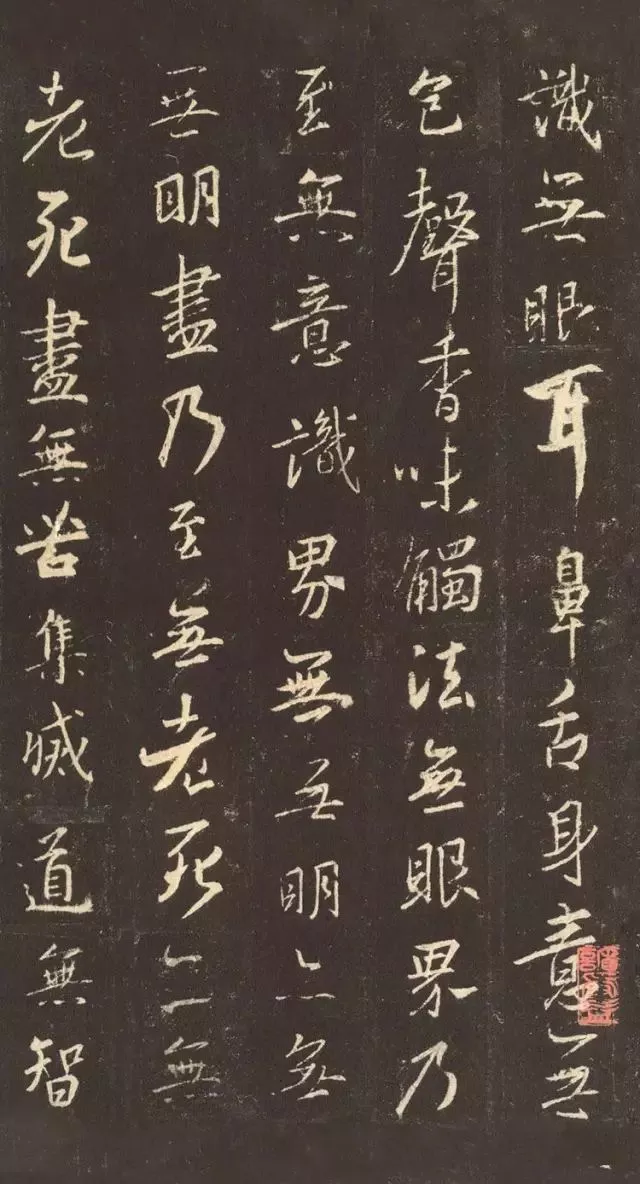 識無眼耳鼻舌身意無
色聲香味觸法無眼界乃
至無意識界無無明亦無
無明盡乃至無老死亦無
老死盡無苦集滅道無智